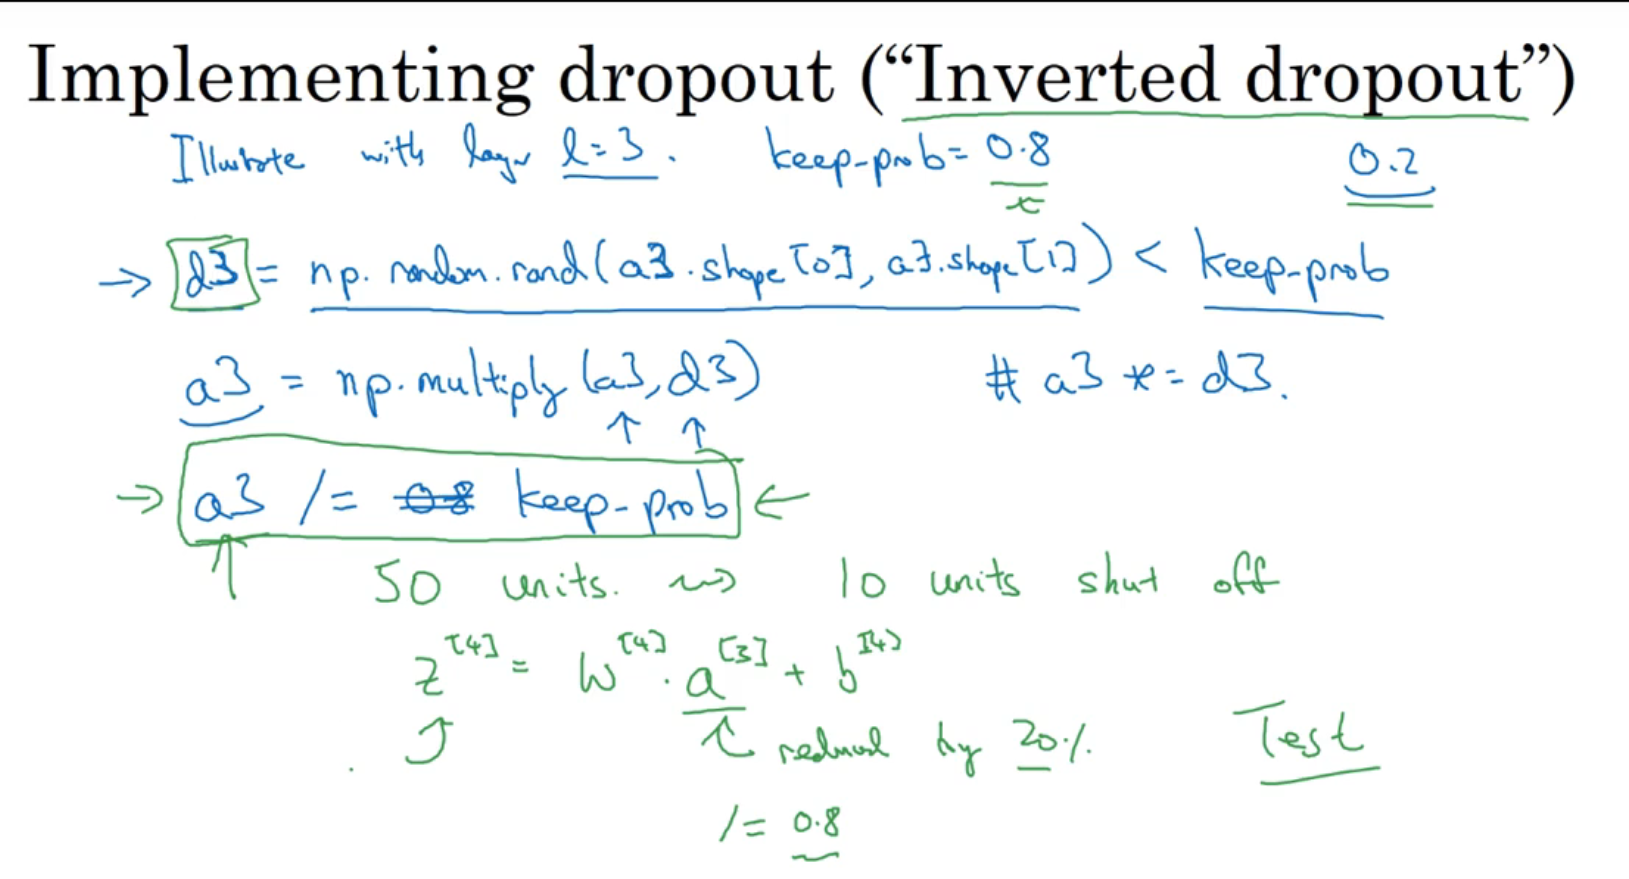 Implementing dropout (“Inverted dropout”)
Illustrate with layer l=3. keep-prob= 0.8 0.2
→ d3 = np.random.rand(a3.shape[0], a3.shape[1]) < keep-prob
a3 = np.multiply(a3, d3) # a3 *= d3.
→ a3 /= 0.8 keep-prob ←
↑ 50 units. ⇝ 10 units shut off
z[4] = W[4] . a[3] + b[4]
reduced by 20%. Test
/= 0.8